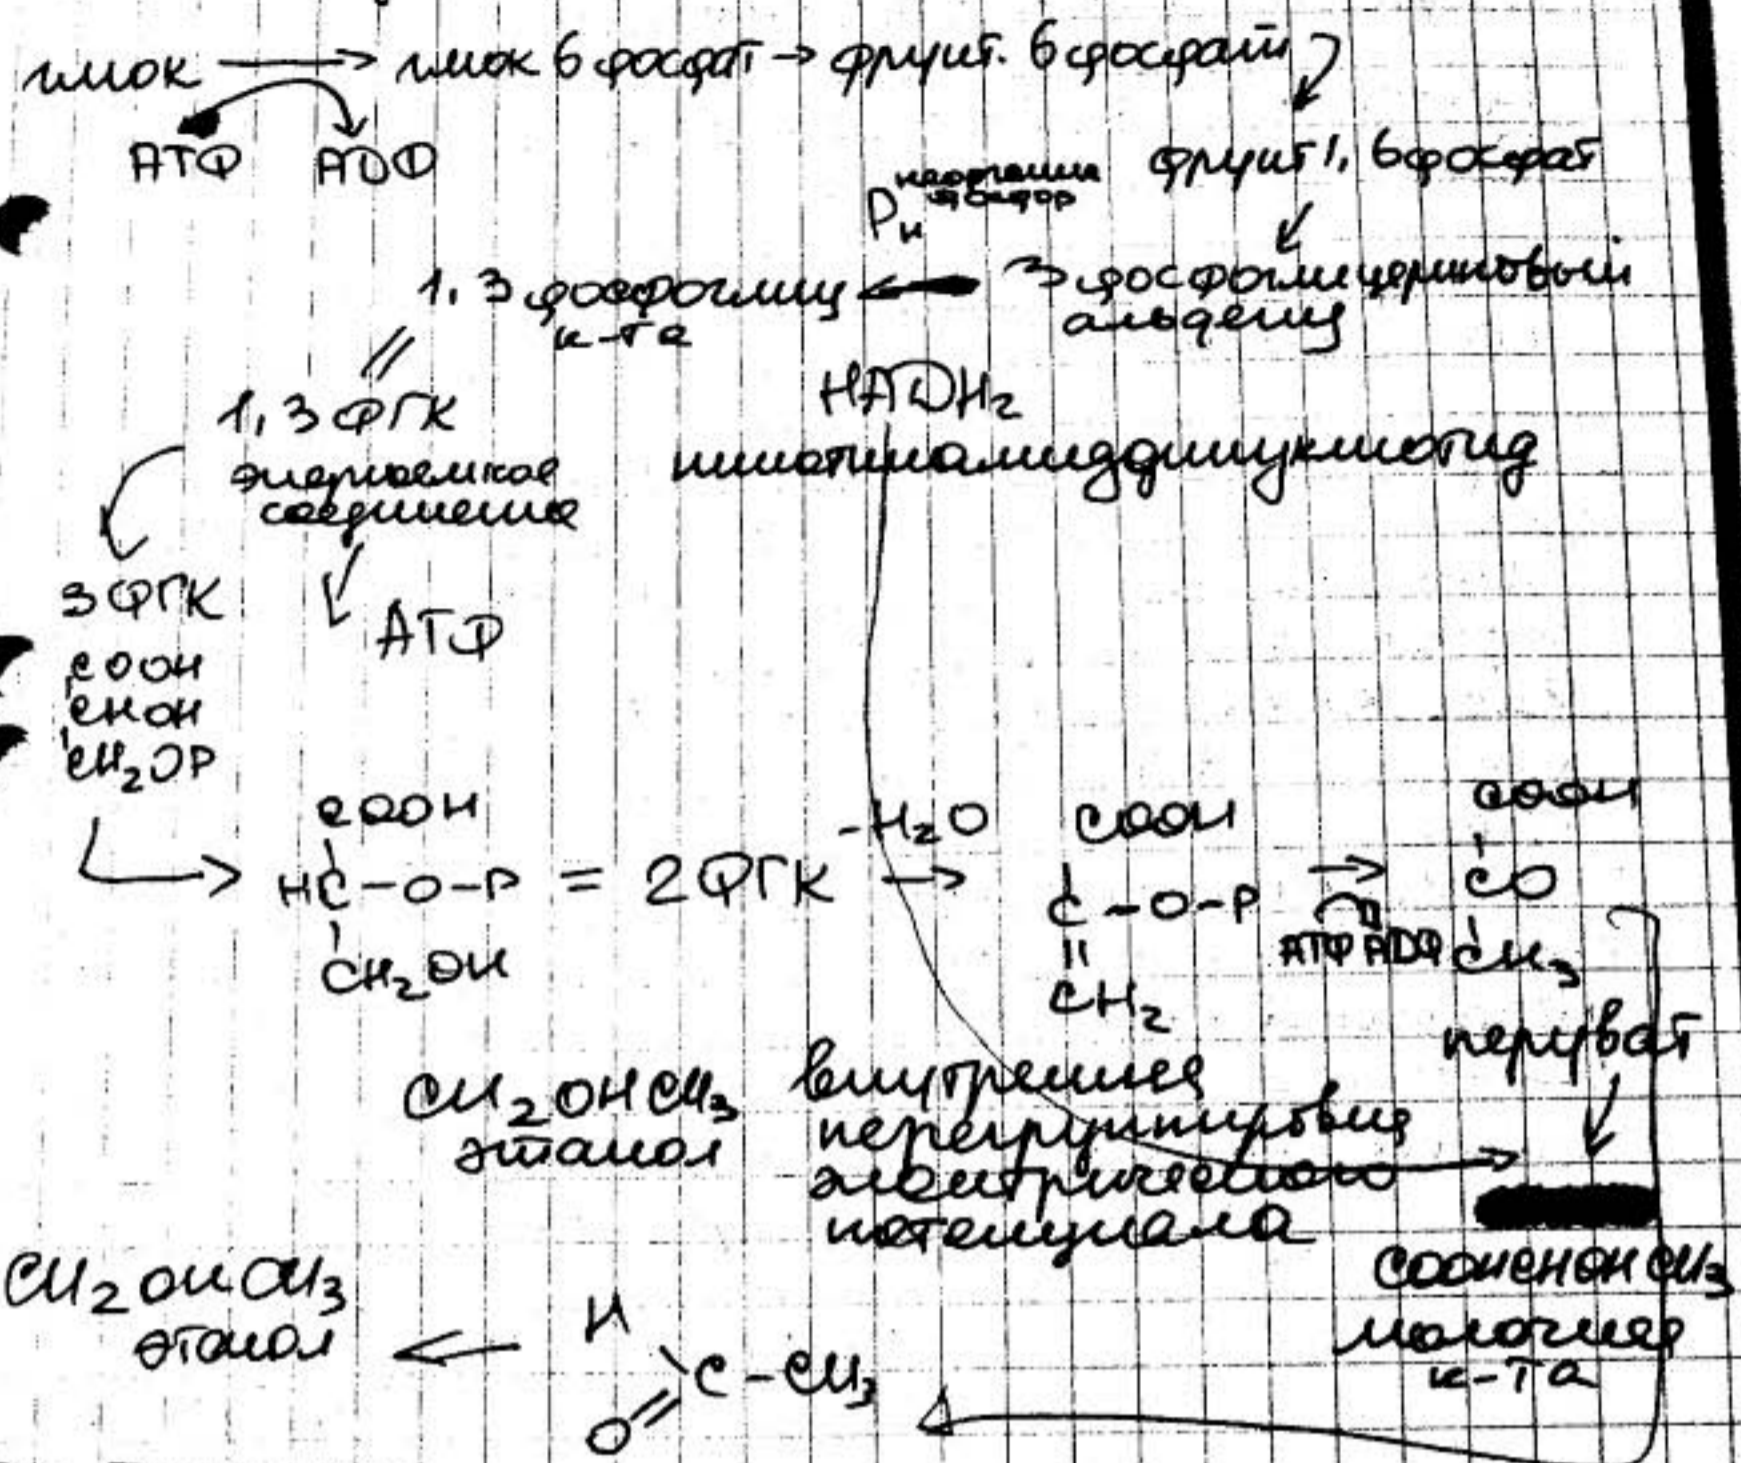 глюк → глюк 6 фосфат → фрукт. 6 фосфат
АТФ АДФ
фрукт 1, 6 фосфат
Рн неорганич фосфор
1, 3 фосфоглиц ← 3 фосфоглицериновый
к-та альдегид
1, 3 ФГК
НАДН₂
энергоемкое
соединение
никотинамиддинуклиотид
3 ФГК
АТФ
COOH
CHOH
CH₂OP
COOH
HC-O-P = 2ФГК
CH₂OH
-H₂O
→
COOH
C-O-P
||
CH₂
→
АТФ АДФ
COOH
CO
CH₃
перуват
CH₂OHCH₃
этанол
внутренняя
перегруппировка
электрического
потенциала
COOHCHOHCH₃
молочная
к-та
CH₂OHCH₃
этанол
←
H
C-CH₃
O